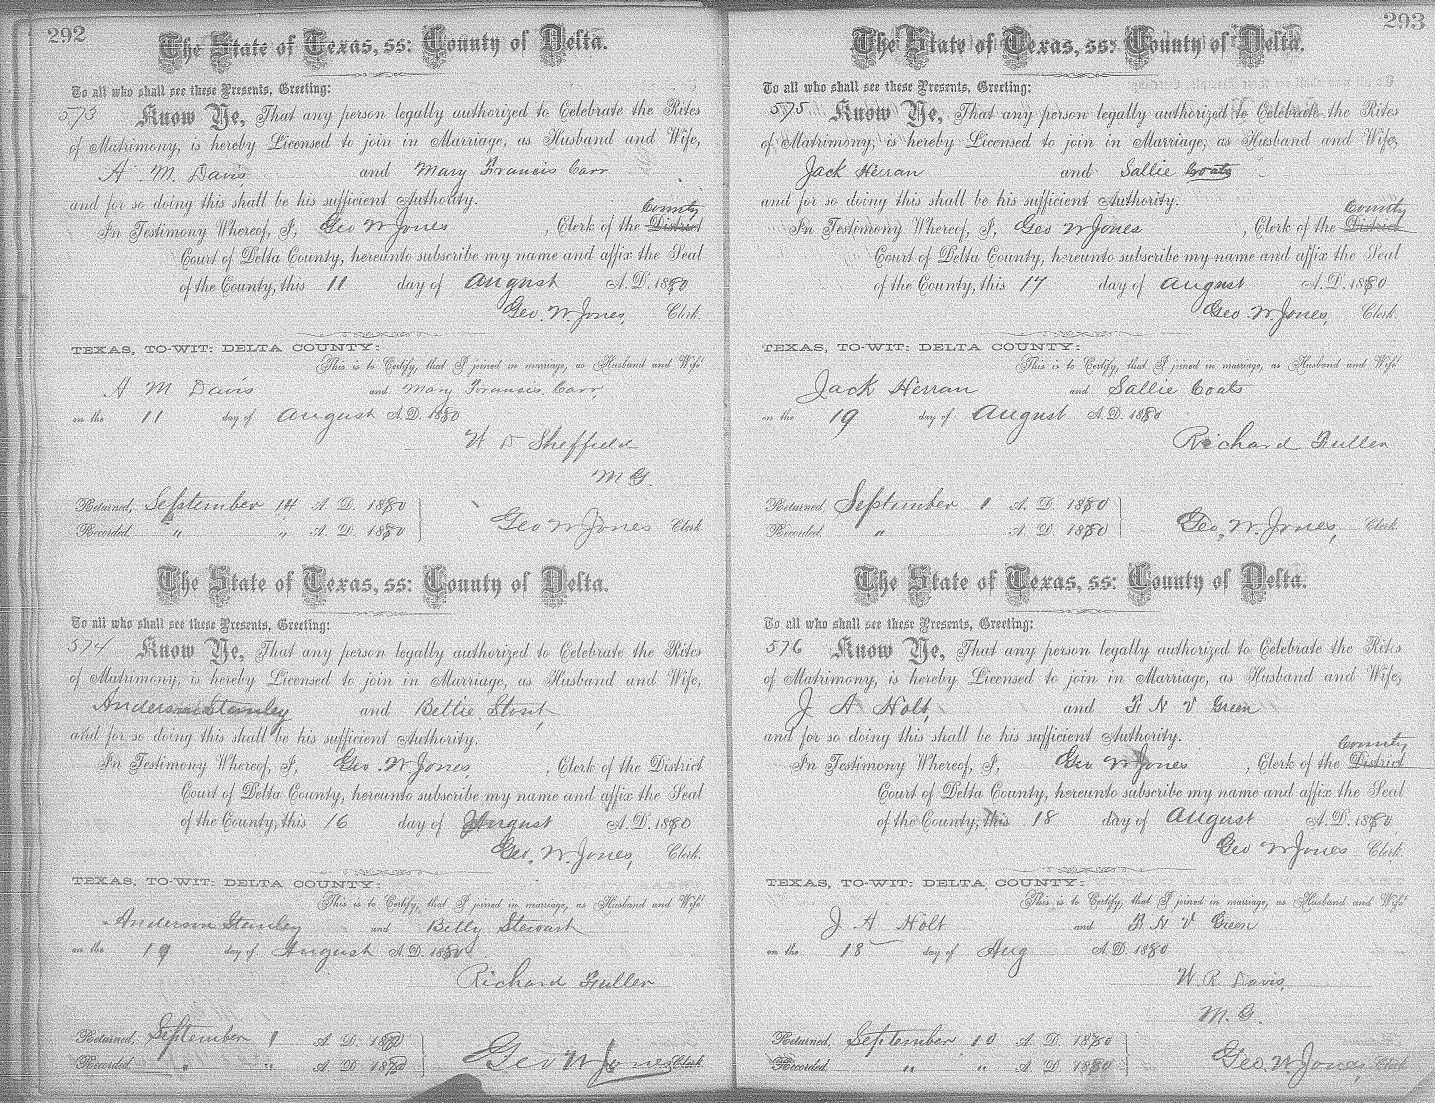 292
The State of Texas, ss: County of Delta.
To all who shall see these Presents, Greeting:
573 Know Ye, That any person legally authorized to Celebrate the Rites
of Matrimony, is hereby Licensed to join in Marriage, as Husband and Wife,
A M. Davis and Mary Francis Carr
and for so doing this shall be his sufficient Authority.
County
In Testimony Whereof, I, Geo W Jones, Clerk of the District
Court of Delta County, hereunto subscribe my name and affix the Seal
of the County, this 11 day of August A.D. 1880
Geo. W. Jones, Clerk.
TEXAS, TO-WIT: DELTA COUNTY:
This is to Certify, that I joined in marriage, as Husband and Wife
A M Davis and Mary Francis Carr,
on the 11 day of August A.D. 1880
W D Sheffield
M G.
Returned, September 14 A. D. 1880
Recorded " " A. D. 1880
Geo W Jones Clerk
The State of Texas, ss: County of Delta.
To all who shall see these Presents, Greeting:
574 Know Ye, That any person legally authorized to Celebrate the Rites
of Matrimony, is hereby Licensed to join in Marriage, as Husband and Wife,
Anderson Stanley and Bettie Stout,
and for so doing this shall be his sufficient Authority.
In Testimony Whereof, I, Geo. W Jones, Clerk of the District
Court of Delta County, hereunto subscribe my name and affix the Seal
of the County, this 16 day of August A.D. 1880
Geo. W. Jones, Clerk.
TEXAS, TO-WIT: DELTA COUNTY:
This is to Certify, that I joined in marriage, as Husband and Wife
Anderson Stanley and Betty Stewart
on the 19 day of August A.D. 1880
Richard Fuller
Returned, September 1 A. D. 1880
Recorded " " A. D. 1880
Geo W Jones Clerk
293
The State of Texas, ss: County of Delta.
To all who shall see these Presents, Greeting:
575 Know Ye, That any person legally authorized to Celebrate the Rites
of Matrimony, is hereby Licensed to join in Marriage, as Husband and Wife,
Jack Herran and Sallie Coats
and for so doing this shall be his sufficient Authority.
County
In Testimony Whereof, I, Geo W Jones, Clerk of the District
Court of Delta County, hereunto subscribe my name and affix the Seal
of the County, this 17 day of August A.D. 1880
Geo. W. Jones, Clerk.
TEXAS, TO-WIT: DELTA COUNTY:
This is to Certify, that I joined in marriage, as Husband and Wife
Jack Herran and Sallie Coats
on the 19 day of August A.D. 1880
Richard Fuller
Returned, September 1 A. D. 1880
Recorded " A. D. 1880
Geo. W. Jones, Clerk
The State of Texas, ss: County of Delta.
To all who shall see these Presents, Greeting:
576 Know Ye, That any person legally authorized to Celebrate the Rites
of Matrimony, is hereby Licensed to join in Marriage, as Husband and Wife,
J A Holt, and N V Green
and for so doing this shall be his sufficient Authority.
County
In Testimony Whereof, I, Geo W Jones, Clerk of the District
Court of Delta County, hereunto subscribe my name and affix the Seal
of the County, this 18 day of August A.D. 1880
Geo W Jones Clerk.
TEXAS, TO-WIT: DELTA COUNTY:
This is to Certify, that I joined in marriage, as Husband and Wife
J A Holt and N V Green
on the 18 day of Aug A.D. 1880
W. R. Davis,
M. G.
Returned, September 10 A. D. 1880
Recorded " " A. D. 1880
Geo. W. Jones, Clerk